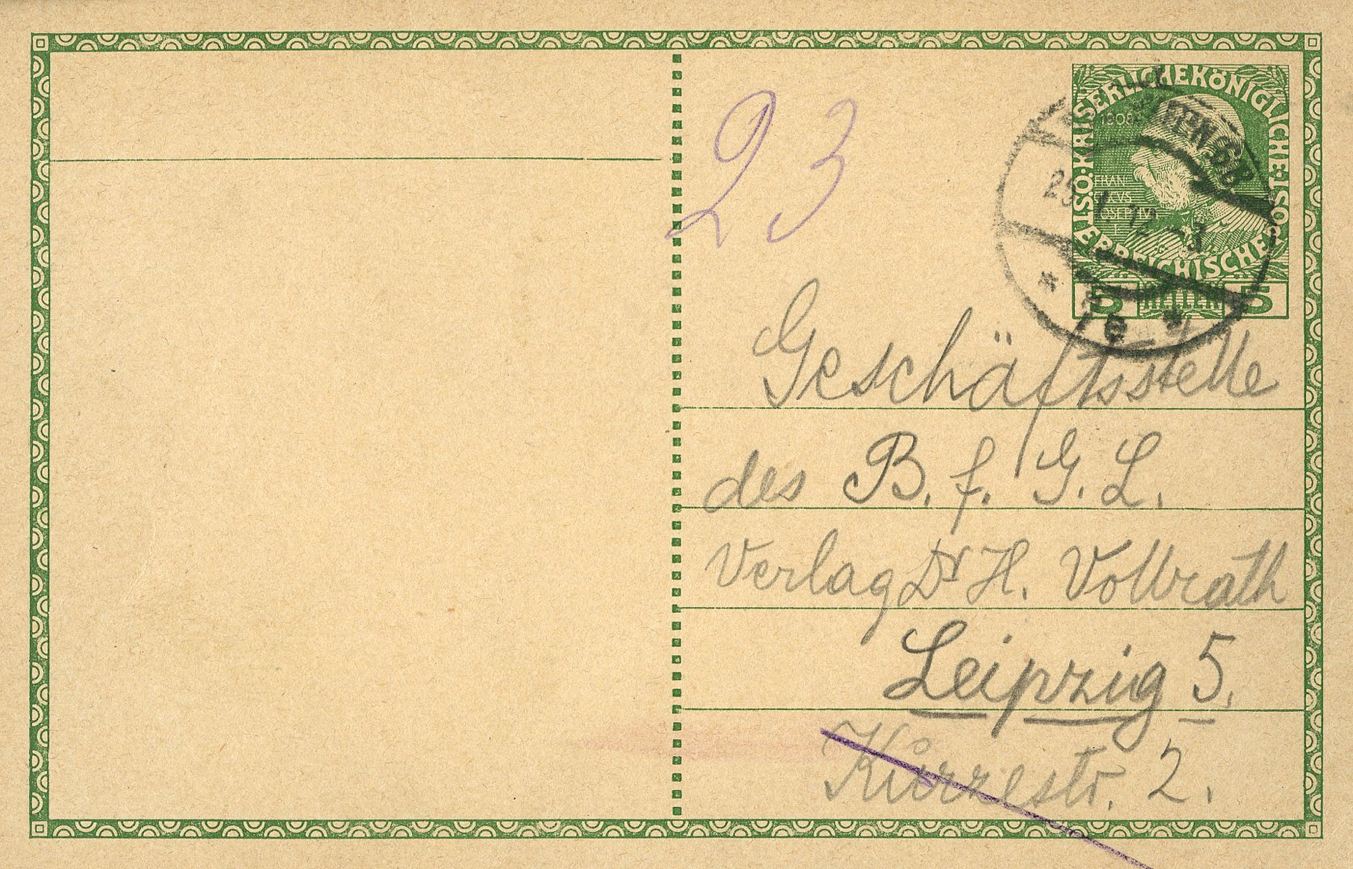 23
KAISERLICHE KÖNIGLICHE
ÖSTERREICHISCHE POST
1908
FRAN
IOSEPH
5 HELLER 5
25. I. 12 - 3
* 7e *
Geschäftsstelle
des B. f. G. L.
Verlag Dr H. Vollrath
Leipzig 5.
Kurzestr. 2.